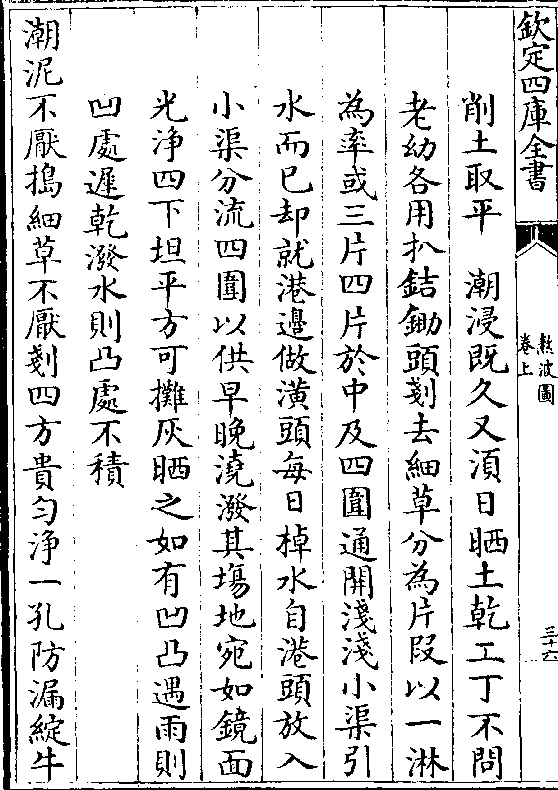 欽定四庫全書
熬波圖
卷上
三十六
削土取平　潮浸既久又須日晒土乾工丁不問
老幼各用扒䥛鋤頭剗去細草分為片段以一淋
為率或三片四片於中及四圍通開淺淺小渠引
水而已却就港邉做潢頭每日棹水自港頭放入
小渠分流四圍以供早晚澆潑其塲地宛如鏡面
光浄四下坦平方可攤灰晒之如有凹凸遇雨則
凹處遲乾潑水則凸處不積
潮泥不厭搗細草不厭剗四方貴匀浄一孔防漏綻牛